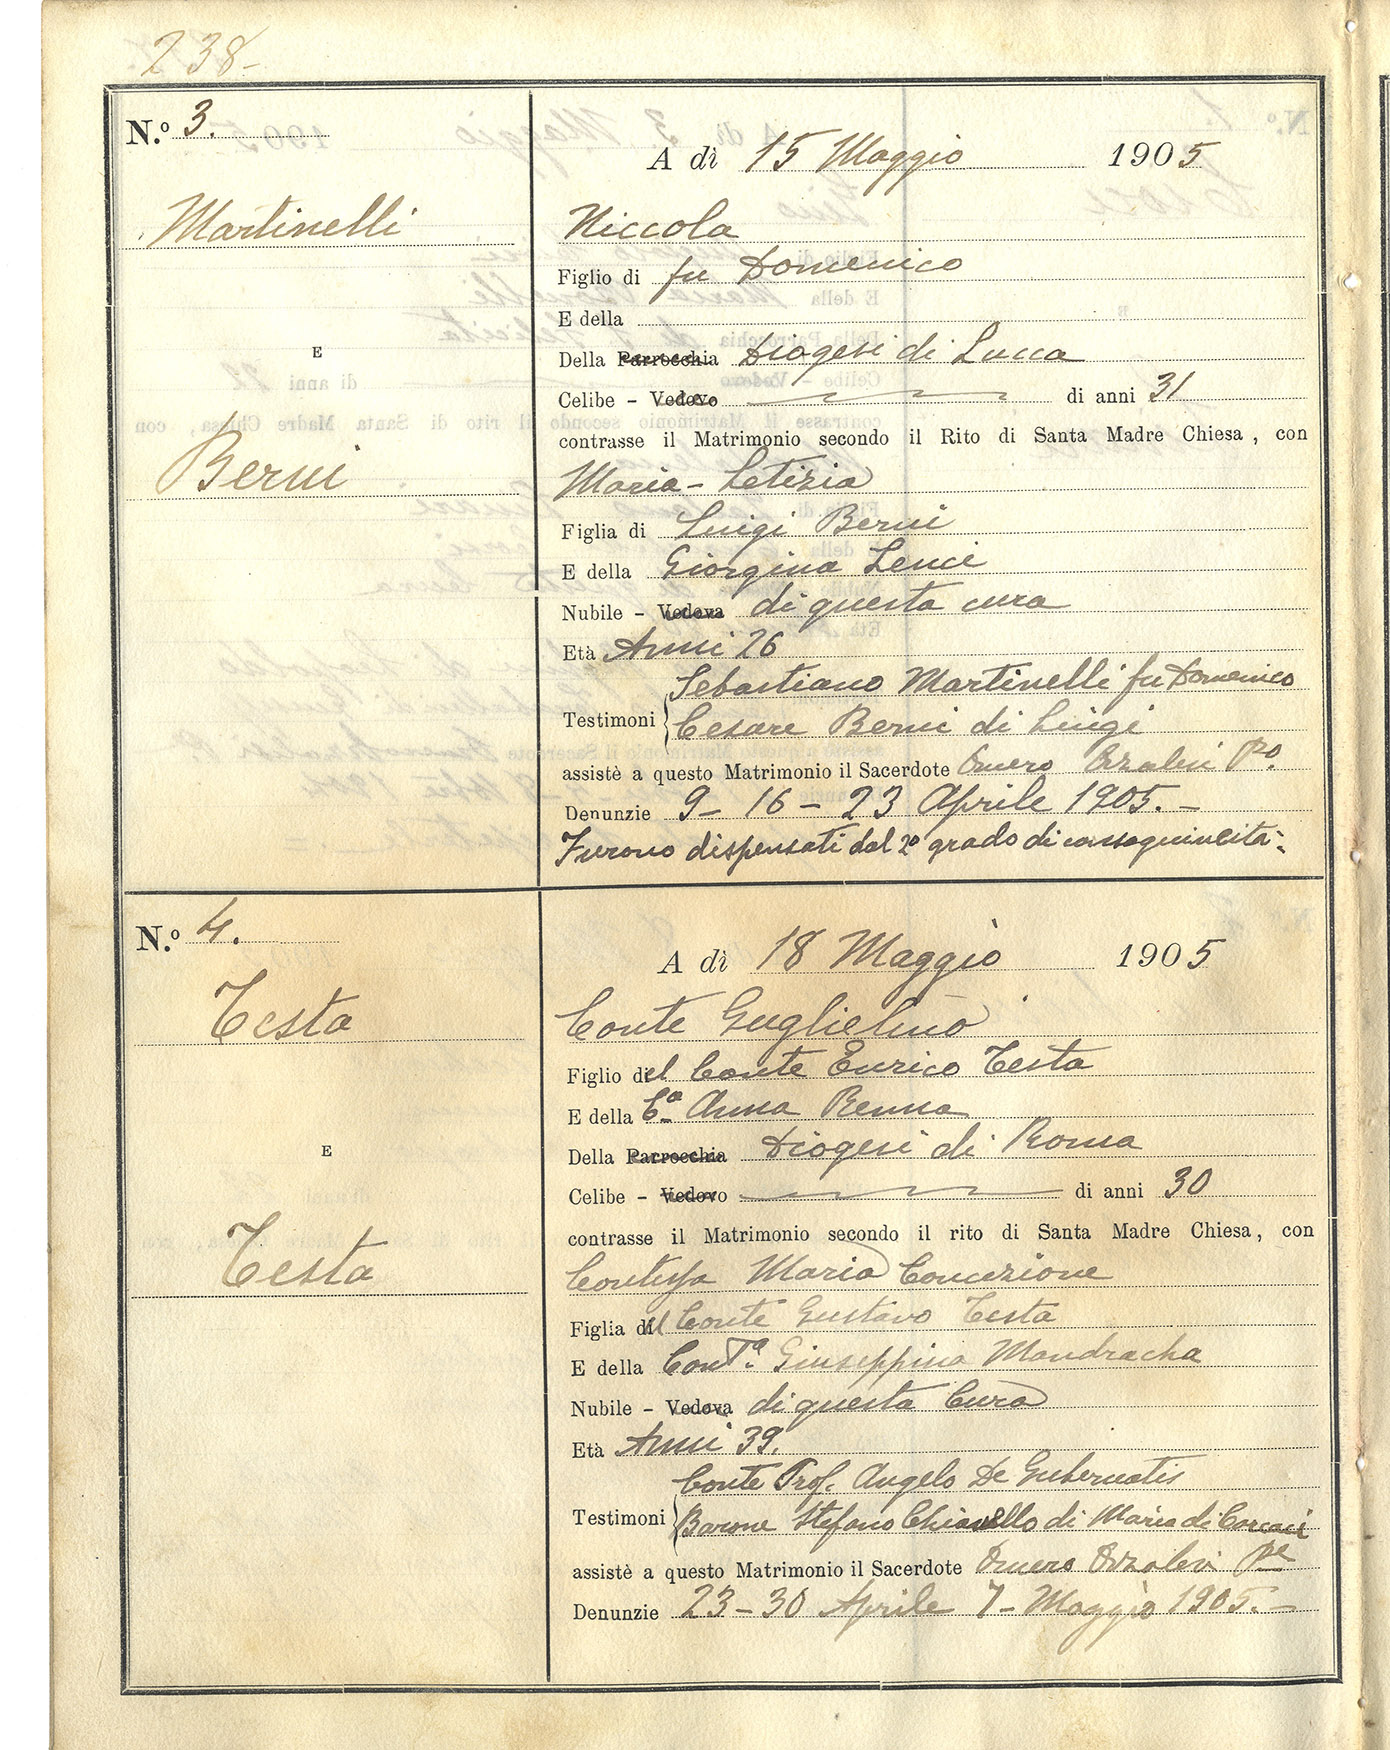 238-
N.º 3.
A dì 15 Maggio 1905
Martinelli
Niccola
Figlio di fu Domenico
E della
E
Della Parrocchia Diogesi di Lucca
Celibe - Vedovo di anni 31
contrasse il Matrimonio secondo il Rito di Santa Madre Chiesa, con
Berni
Maria - Letizia
Figlia di Luigi Berni
E della Giorgina Lenci
Nubile - Vedova di questa cura
Età Anni 26
Sebastiano Martinelli fu Domenico
Testimoni Cesare Berni di Luigi
assistè a questo Matrimonio il Sacerdote Omero Orzalesi Pº.
Denunzie 9 - 16 - 23 Aprile 1905. -
Furono dispensati dal 2º grado di
N.º 4.
A dì 18 Maggio 1905
Testa
Conte Guglielmo
Figlio del Conte Enrico Testa
E della Cª Anna Renna
E
Della Parrocchia Diogesi di Roma
Celibe - Vedovo di anni 30
contrasse il Matrimonio secondo il rito di Santa Madre Chiesa, con
Testa
Contessa Maria Concezione
Figlia del Conte Gustavo Testa
E della ContÃª. Giuseppina Mandracha
Nubile - Vedova di questa Cura
Età Anni 39.
Conte Prof. Angelo De Gubernatis
Testimoni Barone Stefano di Maria di
assistè a questo Matrimonio il Sacerdote Omero Orzalesi
Denunzie 23 - 30 Aprile 7 - Maggio 1905. -